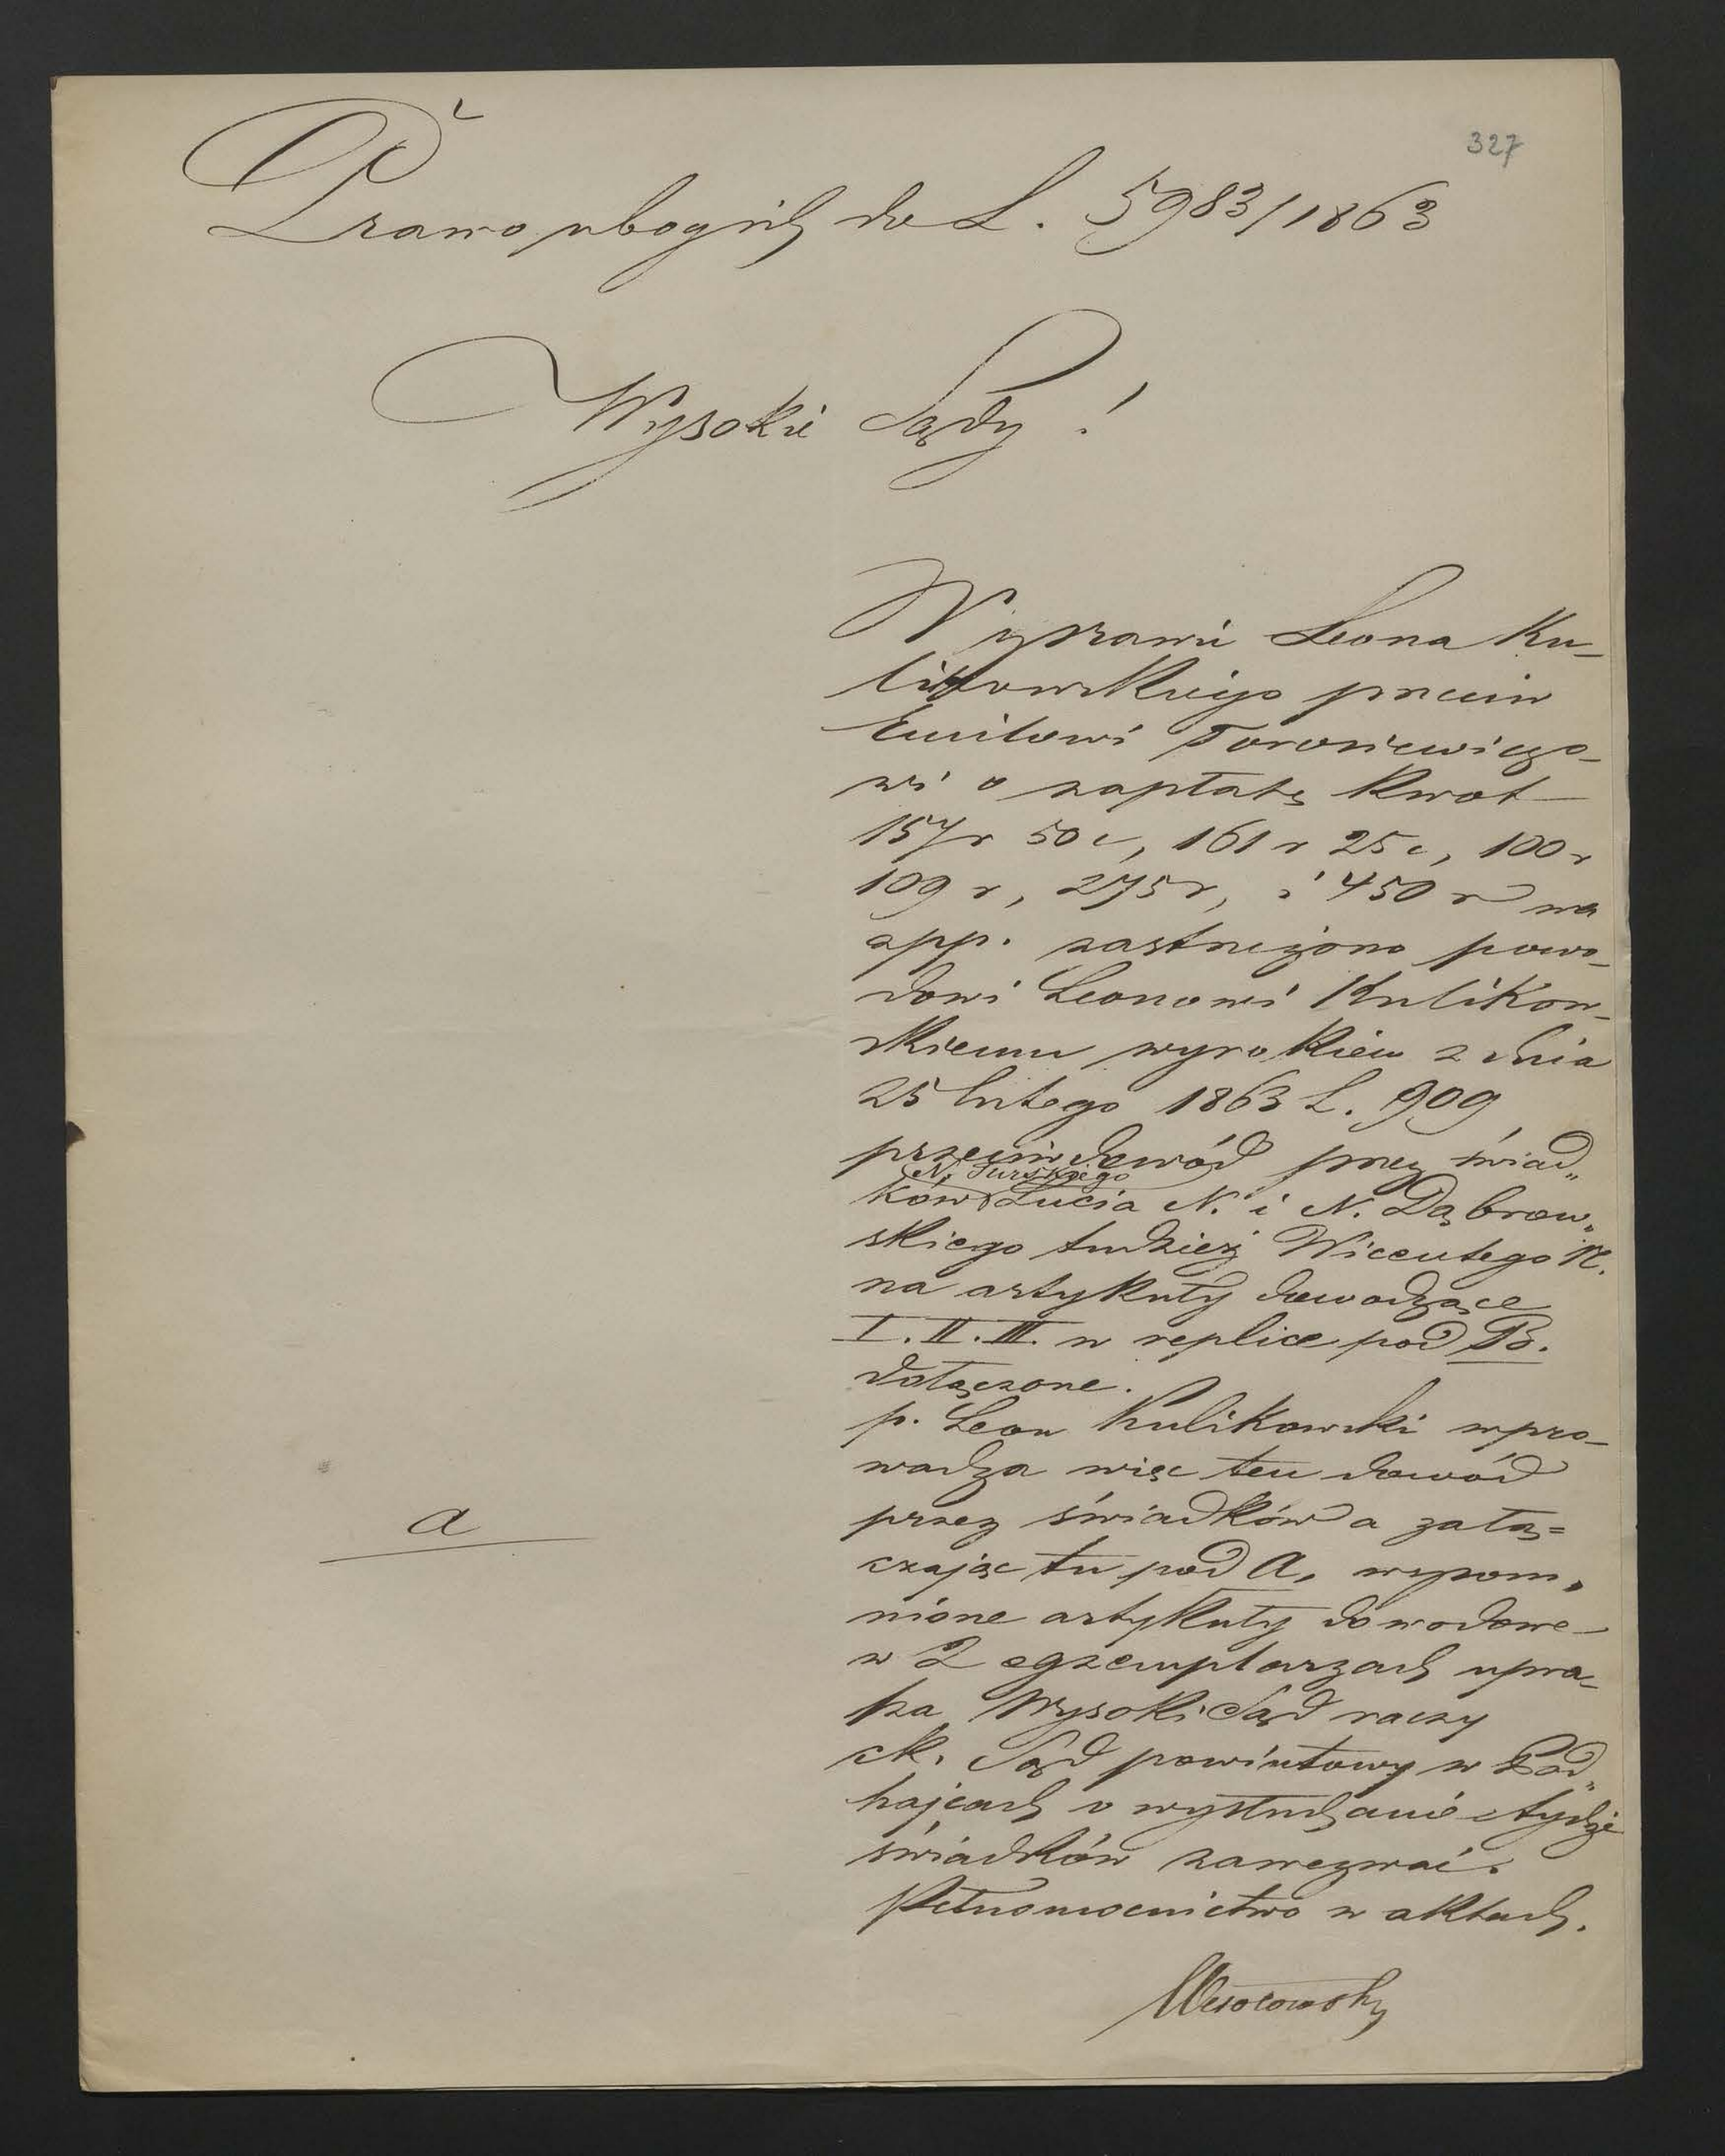 327
Prawo ubogich do L. 5983/1863
Wysoki Sądzie!
W sprawie Leona Ku-
likowskiego przeciw
Emilowi Torosiewiczo-
wi o zapłatę kwot
157 r 50 c, 161 r 25 c, 100 r
109 r, 275 r, i 450 r wa
spp. zastrzeżono powo-
dowi Leonowi Kulikow-
skiemu wyrokiem z dnia
25 lutego 1863 L. 909
przeciwdowód przez świad„
N. Turskiego
ków Lucia N. i N. Dąbrow„
skiego tudzież Wicentego N.
na artykuły dowodzące
I. II. III. w replice pod B.
dołączone.
p. Leon Kulikowski wpro-
wadza więc ten dowód
przez świadków a załą=
a
czając tu pod A, wspom„
nione artykuły dowodowe
w 2 egzemplarzach upra-
sza Wysoki Sąd raczy
ck. Sąd powiatowy w Pod„
hajcach o wysłuchanie tychże
świadków zawezwać.
Pełnomocnictwo w aktach.
Wesołowski